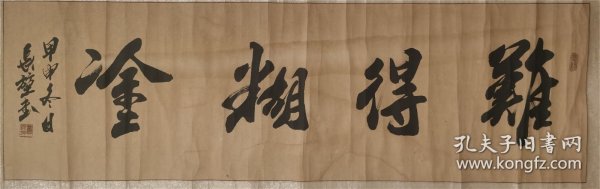 難得糊塗
甲申冬日
孔夫子旧书网
www.kongfz.com